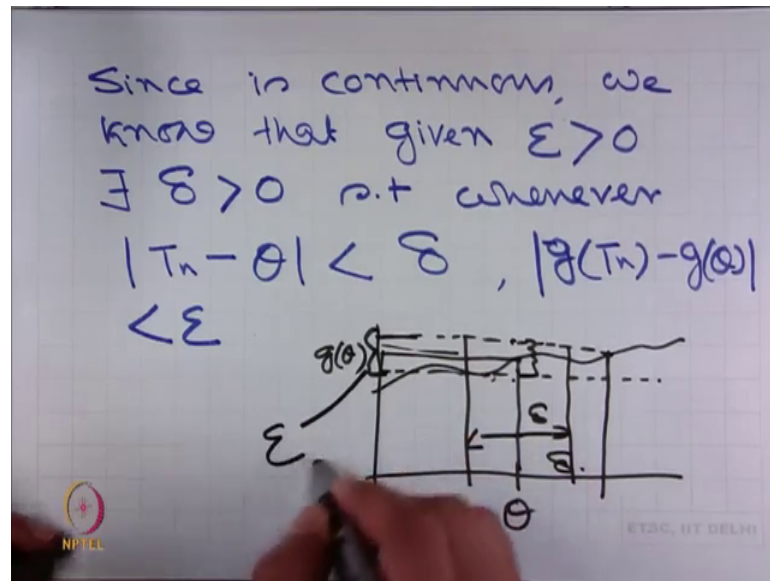 Since is continuous, we
know that given ε > 0
∃ δ > 0 s.t whenever
|Tn - θ| < δ , |g(Tn) - g(θ)|
< ε
g(θ)
ε
δ
θ
NPTEL
ETSC, IIT DELHI